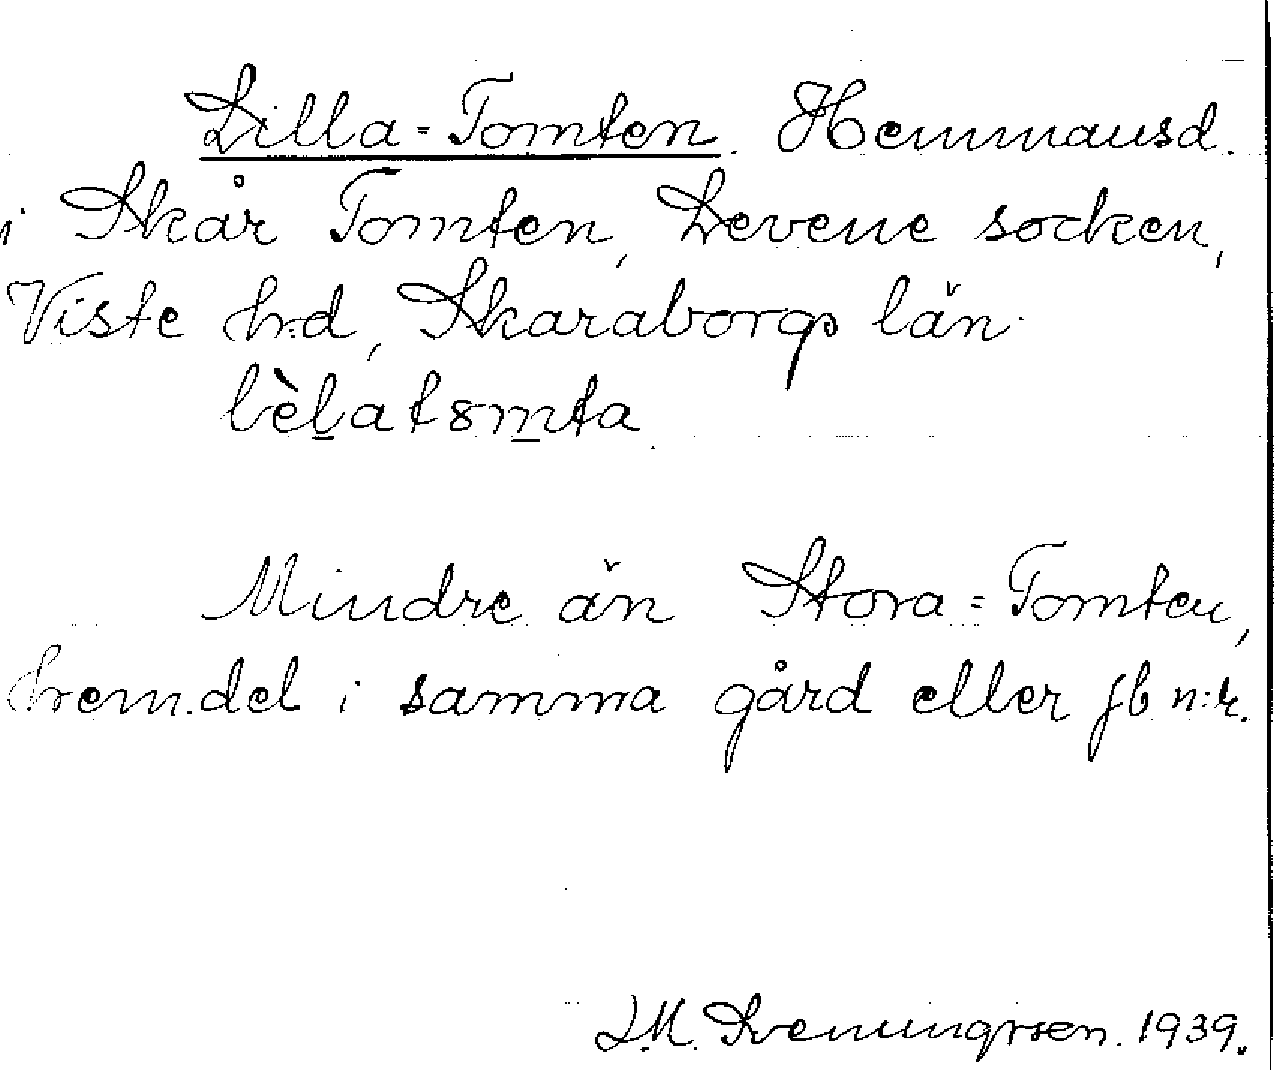 Lilla-Tomten. Hemmansd.
i Skår Tomten, Levene socken,
Viste h:d, Skaraborgs län.
Mindre än Stora-Tomten,
hem.del i samma gård eller jb n:r.
J.M. Svenningsen. 1939.